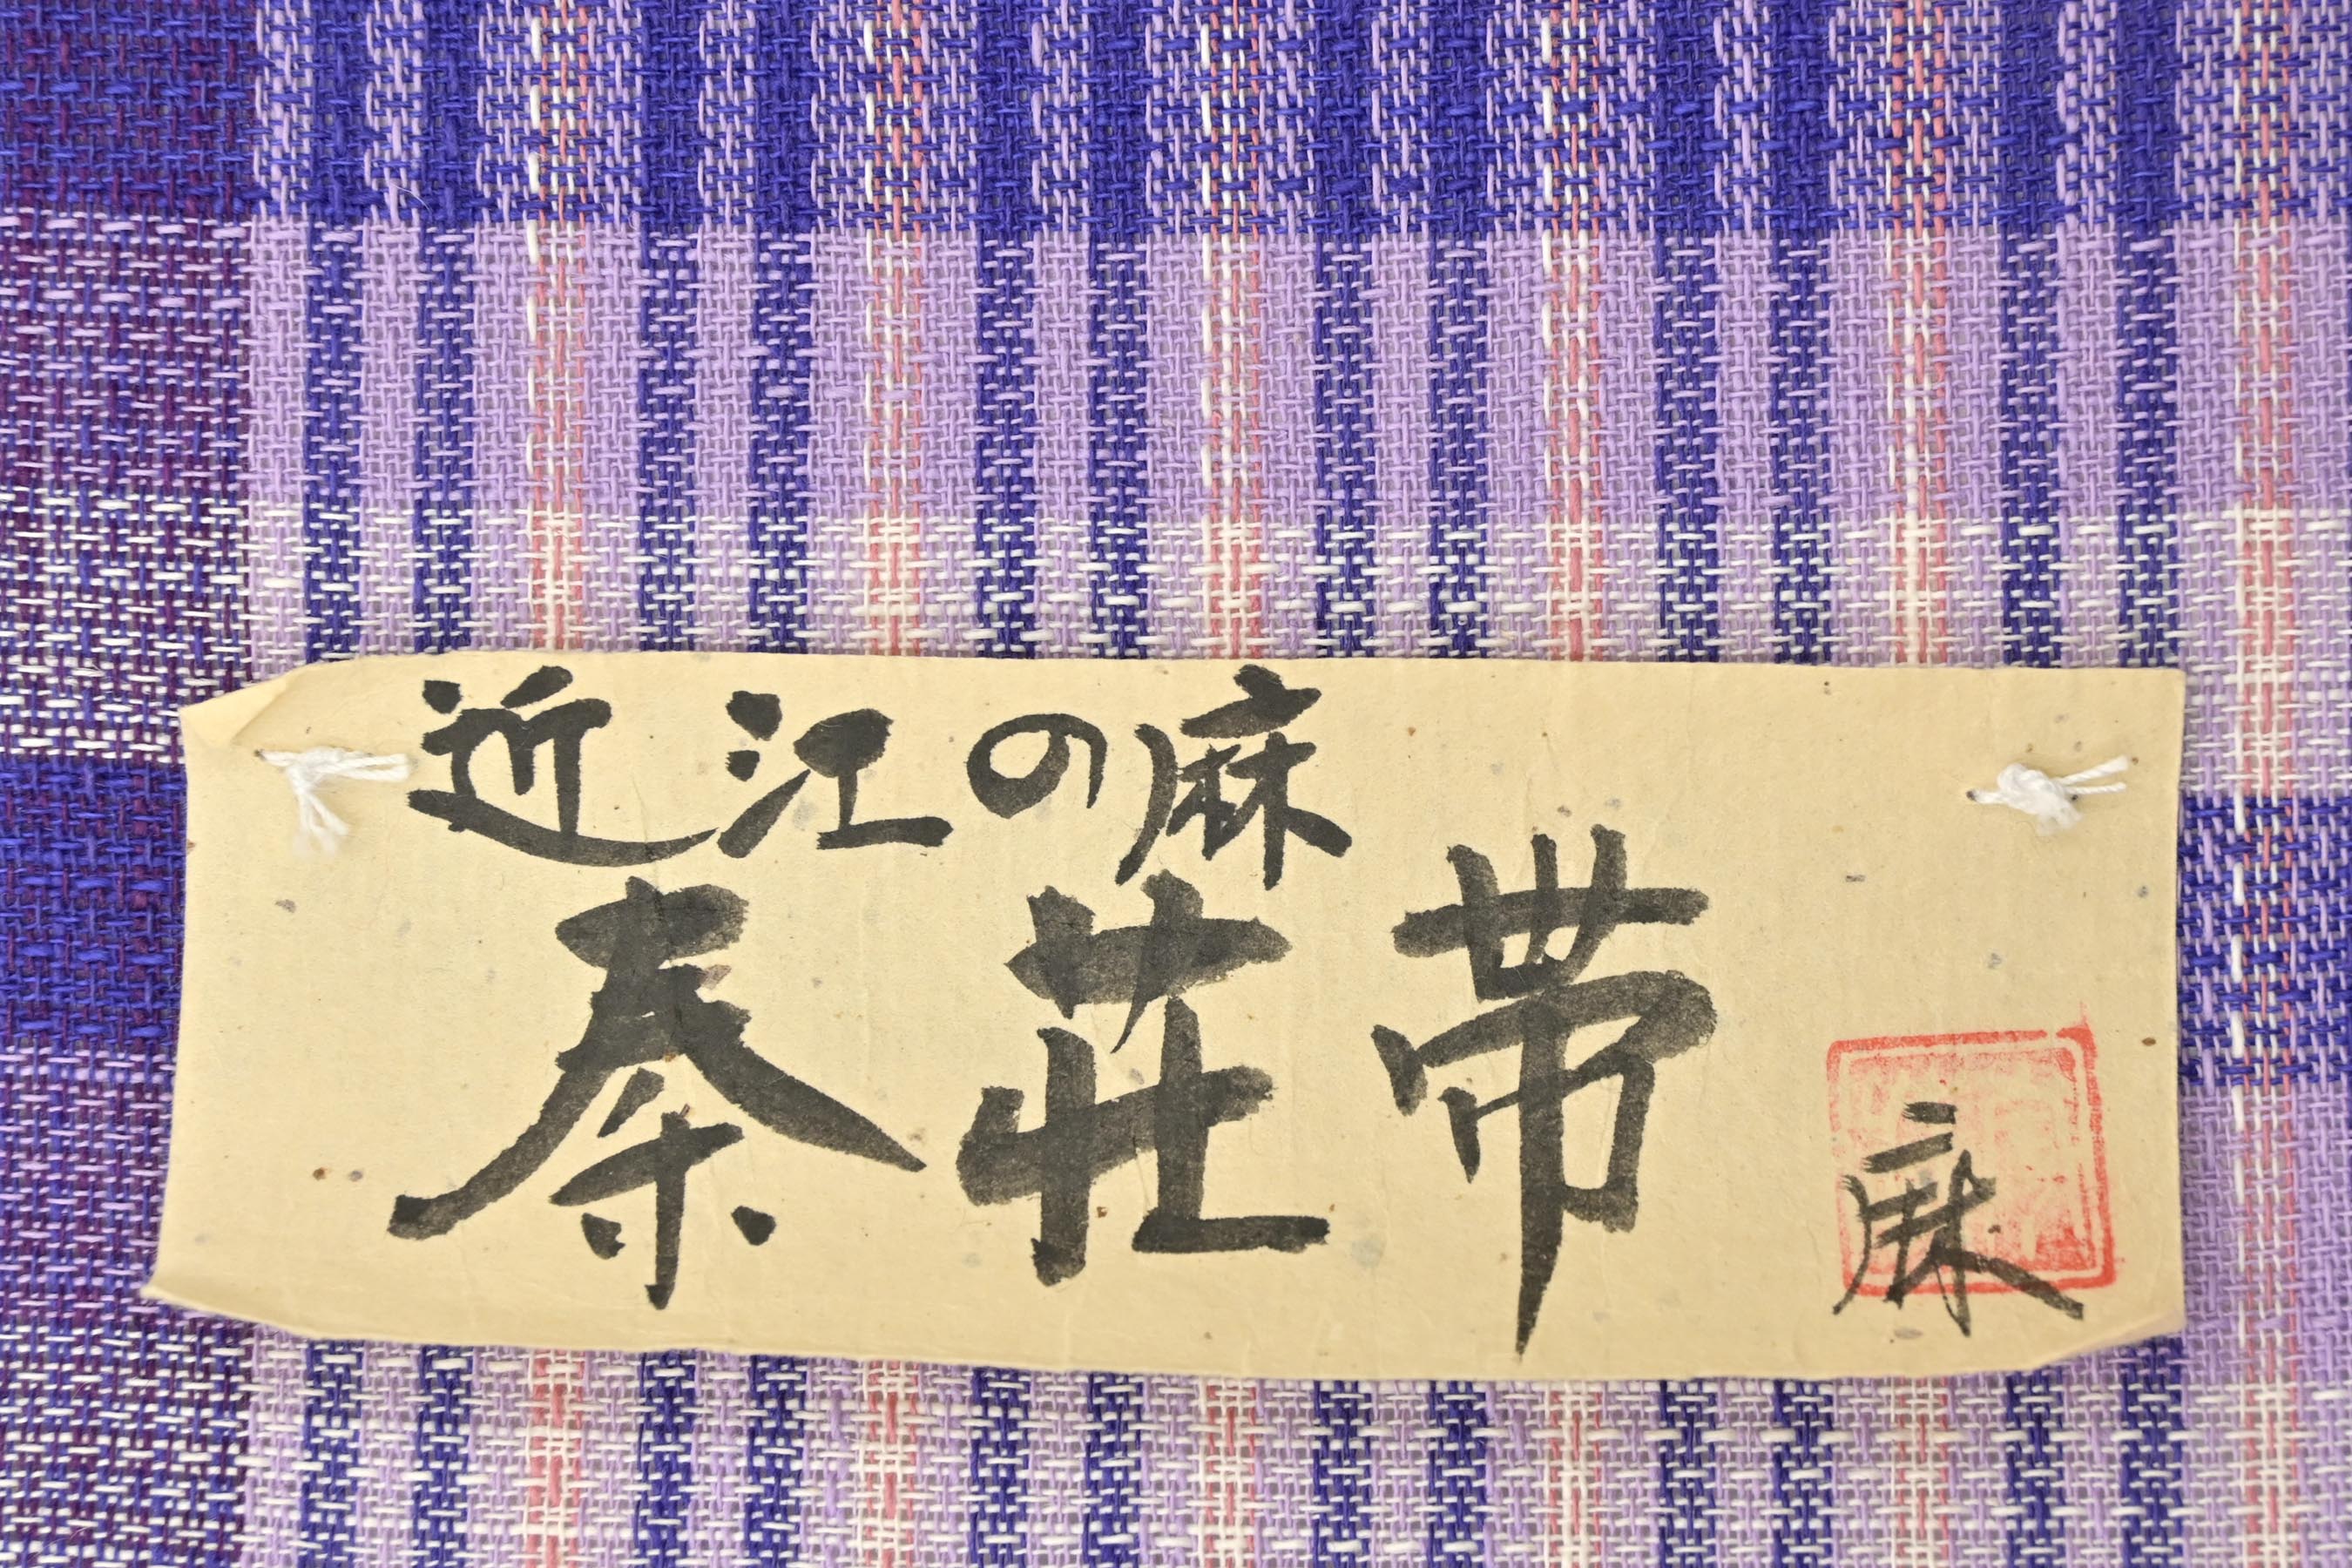 近江の麻
秦荘帯
麻